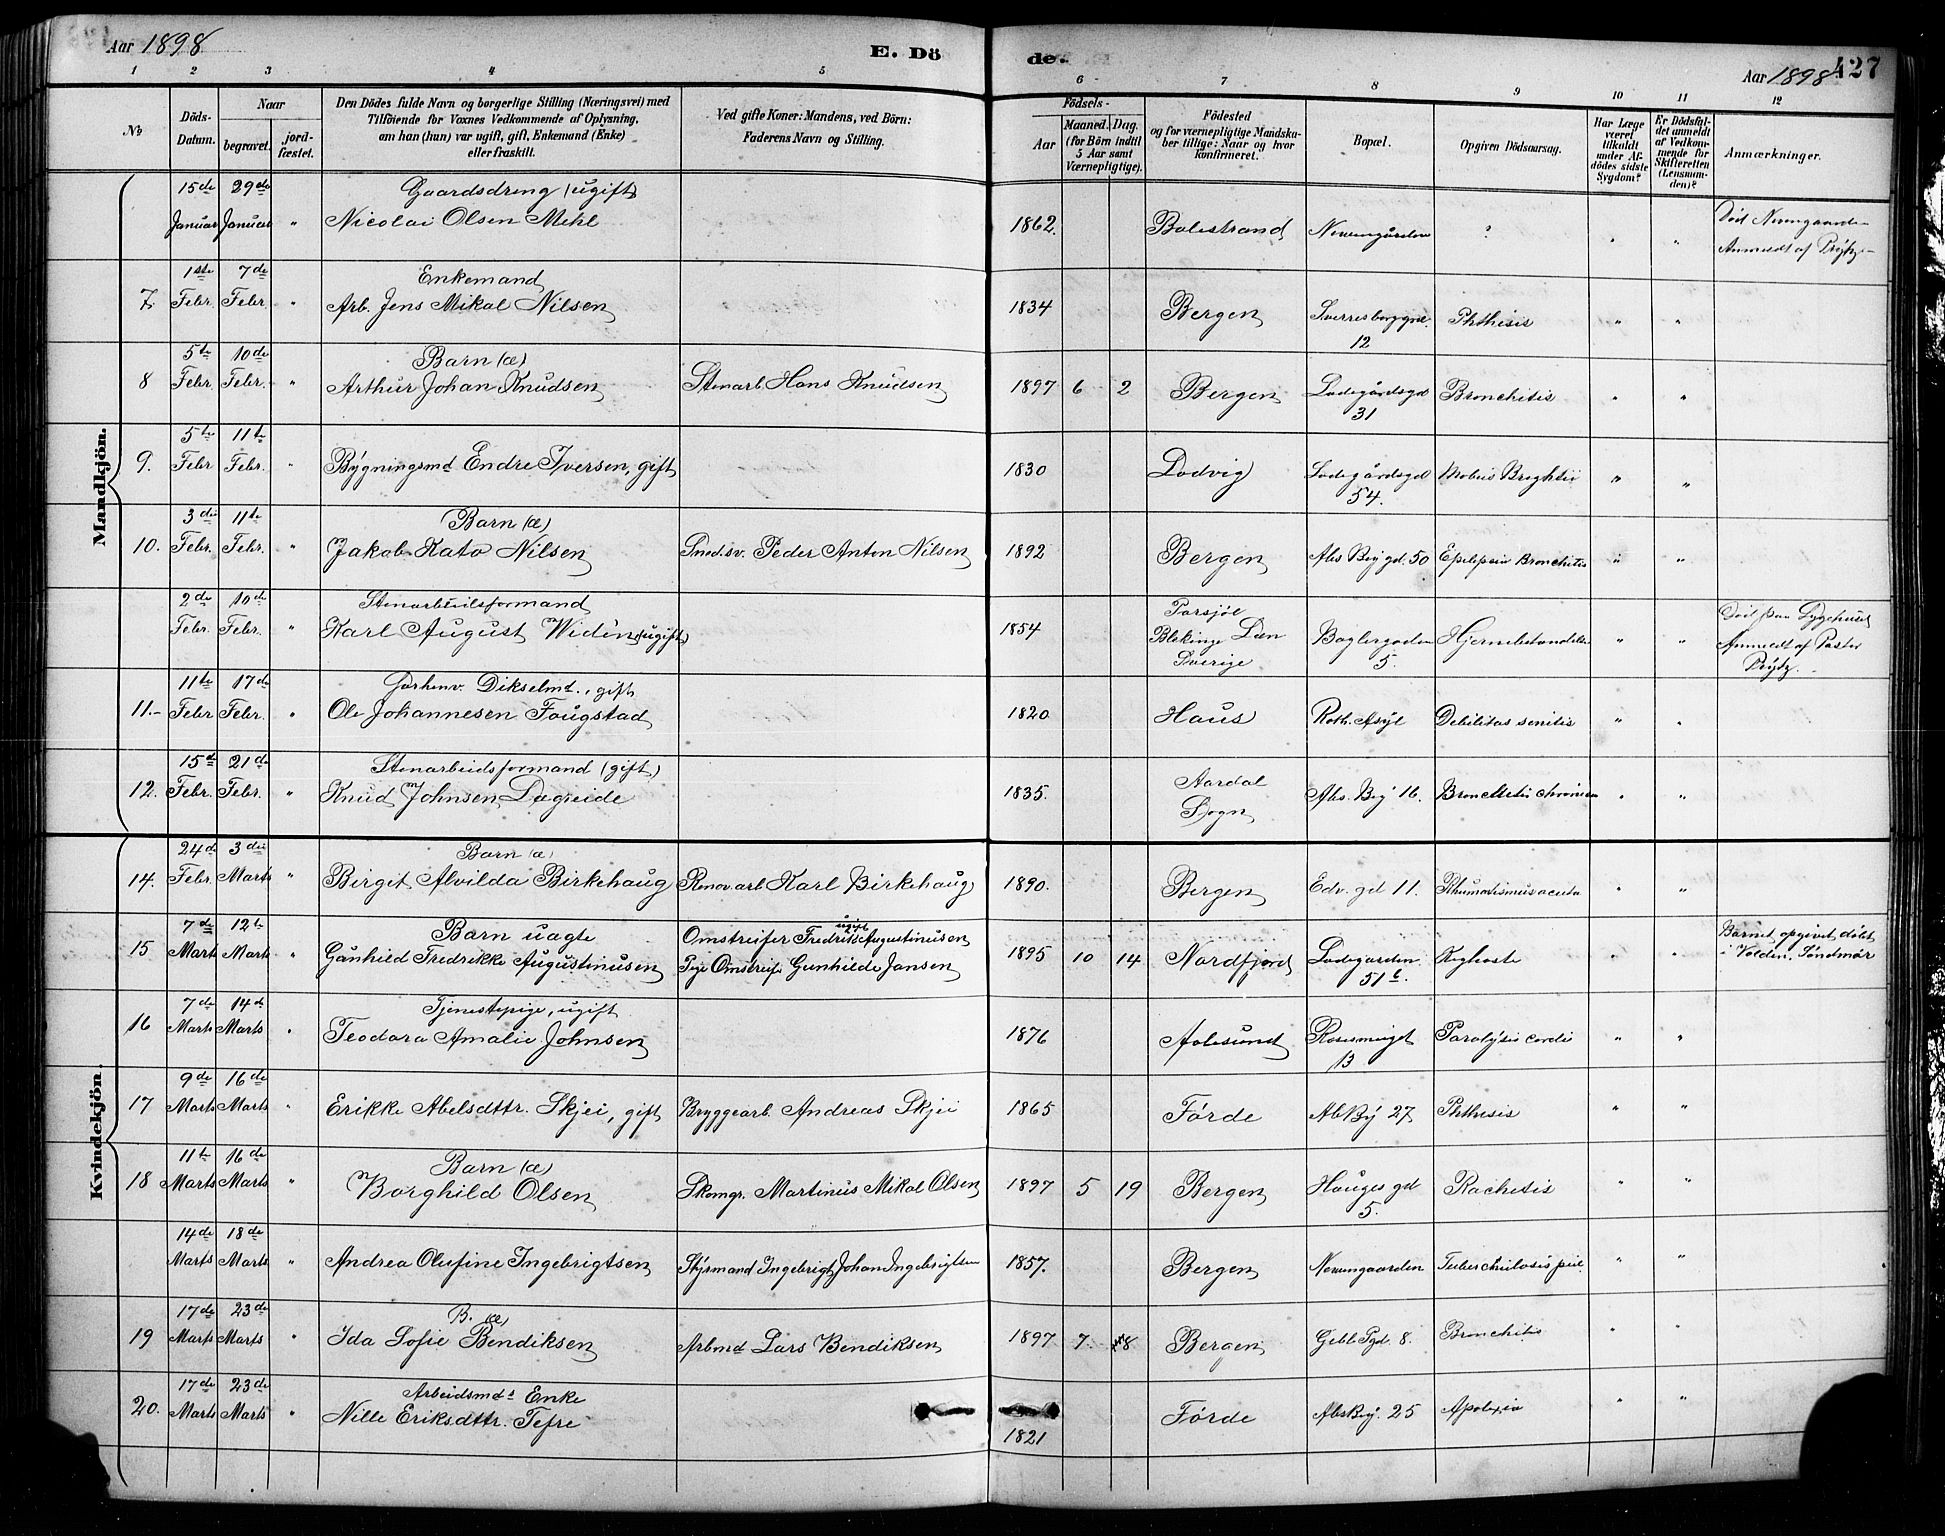 Aar 1898
E. Dö
de.
Aar 1898
427
1 2 3 4 5 6 7 8 9 10 11 12
No
Döds-
Datum.
Naar
begravet.
jord-
fæstet.
Den Dödes fulde Navn og borgerlige Stilling (Næringsvei) med
Tilföiende for Voxnes Vedkommende af Oplysning,
om han (hun) var ugift, gift, Enkemand (Enke)
eller fraskilt.
Ved gifte Koner: Mandens, ved Börn:
Faderens Navn og Stilling.
Födsels-
Aar
Maaned. Dag.
(for Börn indtil
5 Aar samt
Værnepligtige).
Födested
og for værnepligtige Mandska-
ber tillige: Naar og hvor
konfirmeret.
Bopæl.
Opgiven Dödsaarsag.
Har Læge
været
tilkaldt
under Af-
dödes sidste
Sygdom?
Er Dödsfal-
det anmeldt
af Vedkom-
mende for
Skifteretten
(Lensman-
den)?
Anmærkninger.
Mandkjön.
15de 29de Gaardsdreng (ugift)
Januar Januar " Nicolai Olsen Mehl 1862. Balestrand ? " "
Anmeldt af
1ste 7de Enkemand
7. Febr. Febr " Arb. Jens Mikal Nilsen 1834 Bergen Sverresborggd. 12 Phthisis " "
5te 10de Barn (æ)
8 Febr. Febr. " Arthur Johan Knudsen Stenarb. Hans Knudsen 1897 6 2 Bergen Ladegårdsgd 31 Bronchitis " "
5te 11te
9. Febr Febr. " Bygningsmd Endre Iversen, gift 1830 Ladvig Ladegårdsgd 54. Morbus Brightii " "
3die 11te Barn (æ)
10. Febr. Febr. " Jakob Kato Nilsen Smedsv. Peder Anton Nilsen 1892 Bergen 50 Epilepsia Bronchitis " "
2de 10de Stenarbeidsformand
Febr. Febr. " Karl August Widén (ugift) 1854
Blekinge Län
Sverige
Baglergaden 5. " "
Död paa Sygehuset
Anmeldt af Pastor
11te 17de Forhenv. Dikselmd., gift
11. Febr Febr. " Ole Johannesen Fougstad 1820 Haus Roth. Asyl Debilitas senilis " "
15de 21de Stenarbeidsformand (gift)
12. Febr. Febr. " Knud Johnsen Lægreide 1835. Aardal
Sogn 16. Bronchitis chronica " "
Kvindekjön.
24de 3die Barn (æ)
14. Febr. Marts " Birgit Alvilda Birkehaug Renov.arb Karl Birkehaug 1890. Bergen Edv. gd 11. Rhumatismus acuta " "
7de 12te Barn uægte
15 Marts Marts " Gunhild Fredrikke Augustinusen
Omstreifer ugift Fredrik Augustinusen
Pige Omstreif. Gunhilde Jansen
1895 10 14 Nordfjord Ladegarden 51b. Kighoste " "
Barnet opgivet döbt
i Volden, Söndmör
7de 14de Tjenestepige, ugift
16 Marts Marts " Teodora Amalie Johnsen 1876 Aalesund Paralysis cordis " "
9de 16de
17 Marts Marts " Erikke Abelsdttr. Skjei, gift Bryggearb. Andreas Skjei 1865 Förde 27 Phthisis " "
11te 16de Barn (æ)
18 Marts Marts " Borghild Olsen Skomgr. Martinus Mikal Olsen 1897 5 19 Bergen Hauges gd 5. Rachitis " "
14de 18de
Marts Marts " Andrea Olufine Ingebrigtsen Styrmand Ingebrigt Johan Ingebrigtsen 1857. Bergen Tuberchulosis pul. " "
17de 23de B. (æ)
19 Marts Marts " Ida Sofie Bendiksen Arbmd Lars Bendiksen 1897 7. 8 Bergen 8. Bronchitis " "
17de 23de Arbeidsmds Enke
20. Marts Marts " Nille Eriksdttr. Tefre 1821 Förde 25 Apoplexia " "